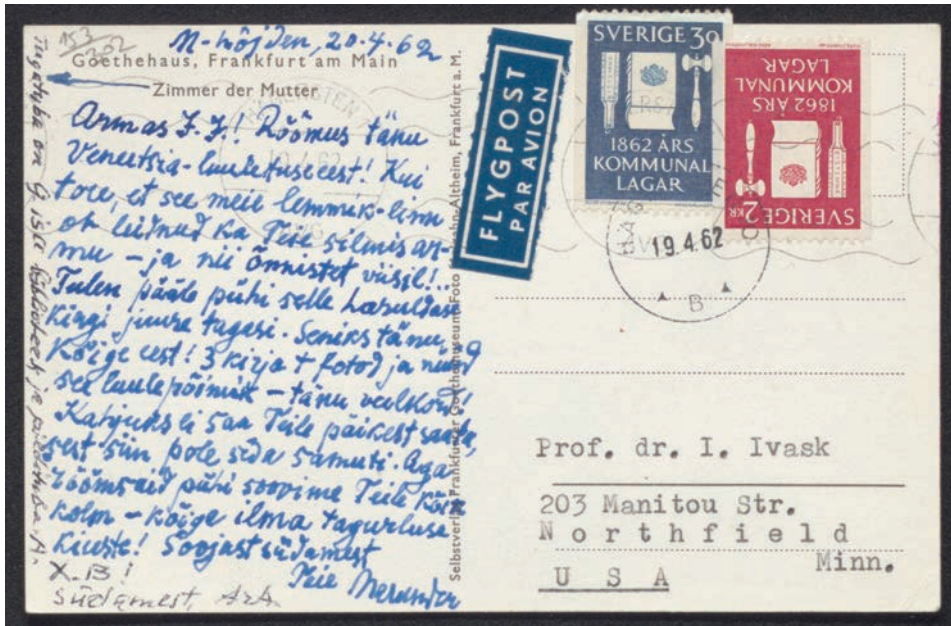 153
M-höjden, 20.4.62
Goethehaus, Frankfurt am Main
Zimmer der Mutter
Armas I. I.! Rõõmus tänu
Veneetsia-luuletuse eest! Kui
tore, et see meie lemmik-linn
on leidnud ka Teie silmis ar-
mu – ja nii õnnistet viisil!..
Tulen pääle pühi selle haruldase
kingi juure tagasi. Seniks tänu
kõige eest! 3 kirja + fotod ja nüüd
see luulepõimik – tänu veelkord!
Kahjuks ei saa Teile päikest saata,
sest siin pole seda samuti. Aga
rõõmsaid pühi soovime Teile kõik
kolm – kõige ilma tagurluse
kiuste! Soojast südamest
Teie
X.B!
Südamest,
Tagatuba on G. isa
Selbstverlag Frankfurter Goethemuseum Foto
Altheim, Frankfurt a. M.
FLYGPOST
PAR AVION
SVERIGE 30
1862 ÅRS
KOMMUNAL
LAGAR
SVERIGE 2 KR
1862 ÅRS
KOMMUNAL
LAGAR
19.4.62
B
Prof. dr. I. Ivask
203 Manitou Str.
Northfield
Minn.
U S A